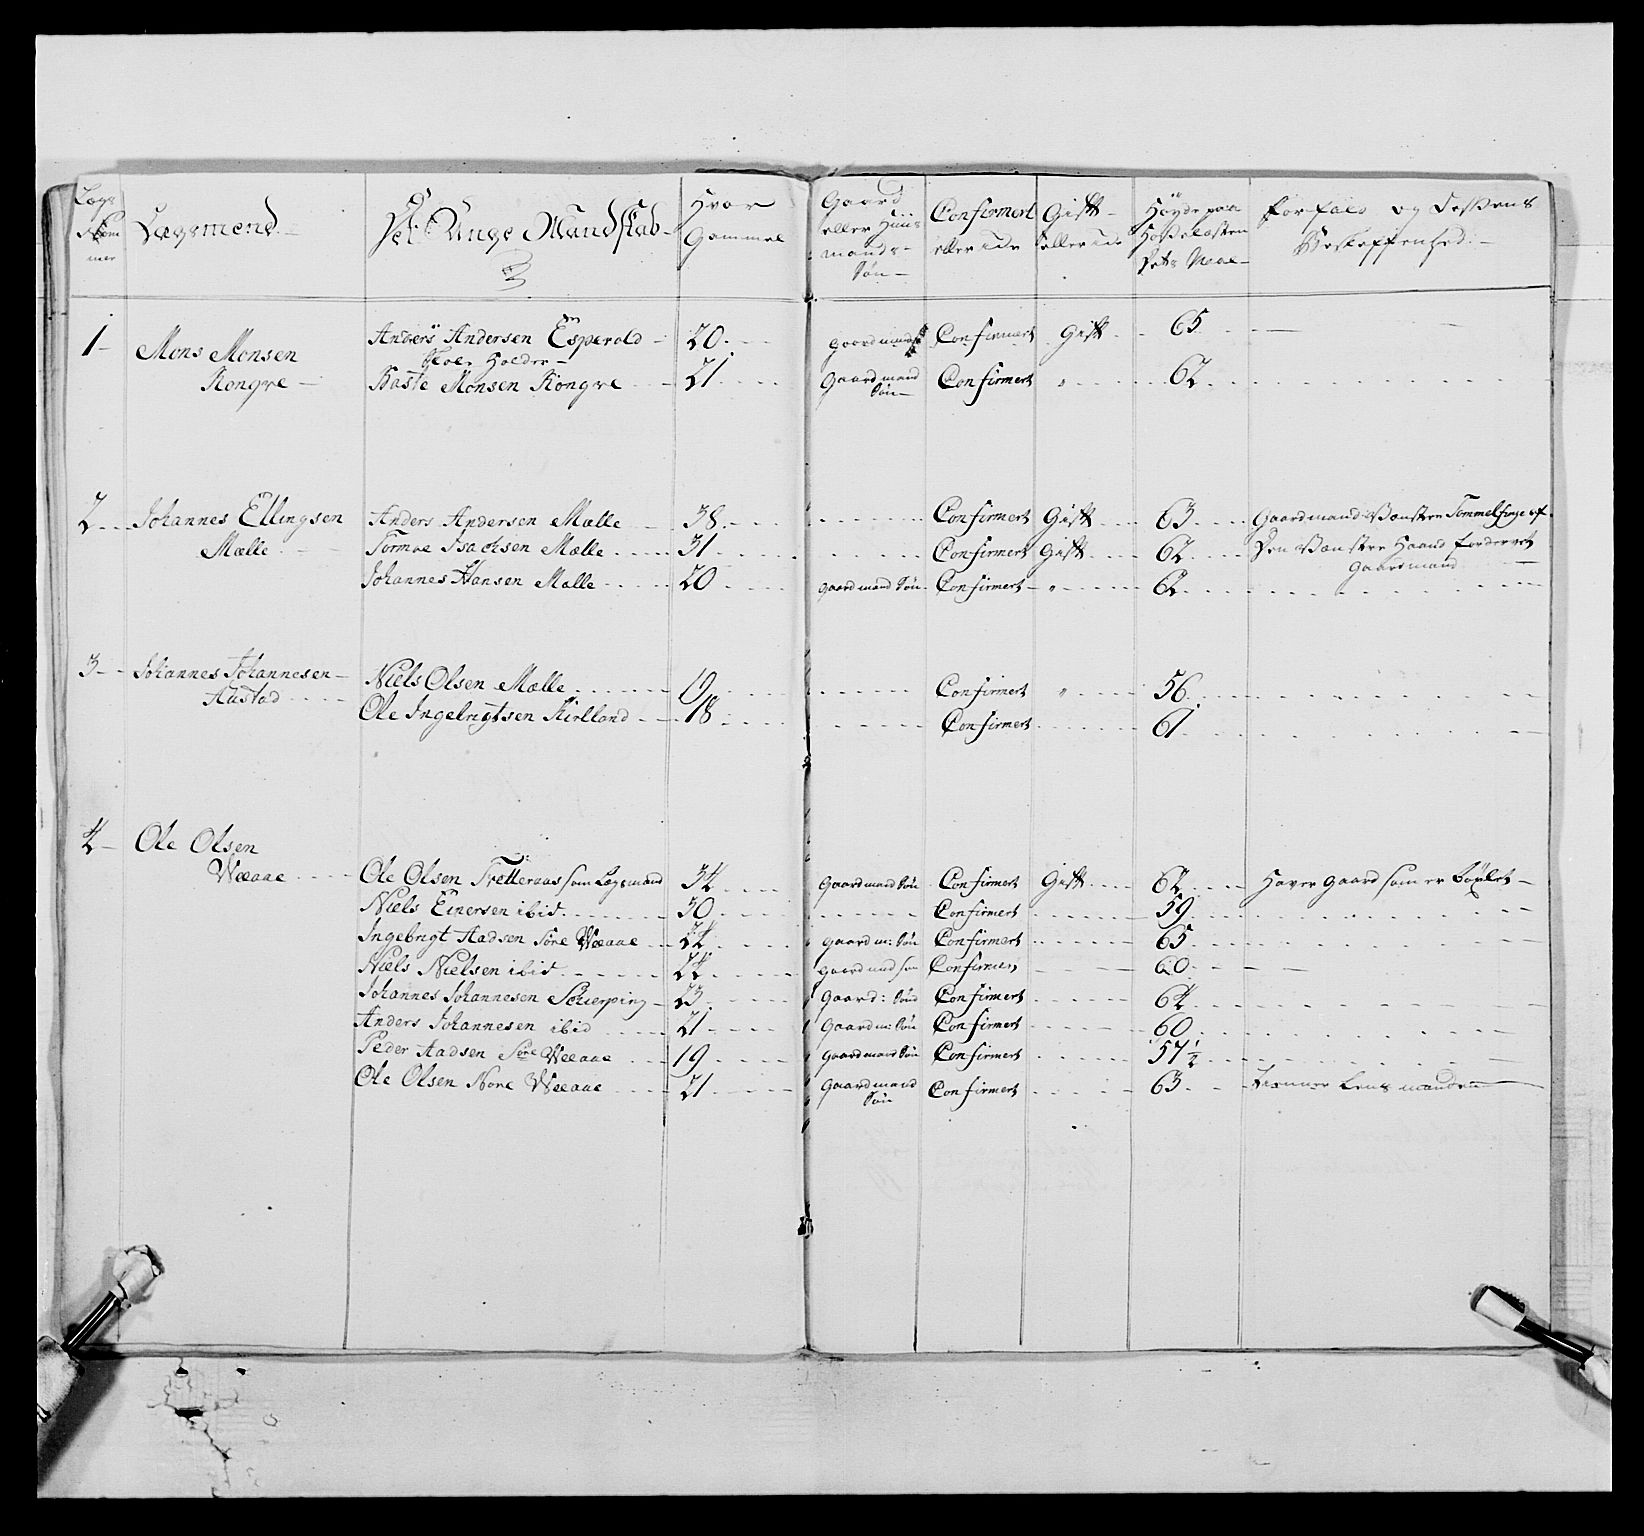 Lægs Nom mer | Lægsmend | Det Unge Mandskab | Hvor Gammel | Gaard eller Huus mands Søn | Confirmert eller Ide | Gift eller Ide | Høyde paa Hoselæsten | Forfald og dessens Beskaffenhed
1 | Mons Monsen | Anders Andersen Esperold | 20 | gaardmand | Confirmert | Gift | 65
Skole Holder
Kongre | Baste Monsen Kongre | 21 | Gaardmand Søn | Confirmert | " | 62
2 | Johannes Ellingsen | Anders Andersen Mælle | 38 | Confirmert | Gift | 63 | Gaardmand Venstre Tommelfinge af
Mælle | Tormoe Isachsen Mælle | 31 | Confirmert | Gift | 62 | Den Venstre Haand fordervet
Gaardmand
Johannes Hansen Mælle | 20 | gaardmand Søn | Confirmert | " | 62
3 | Johannes Johannesen | Niels Olsen Mælle | 19 | Confirmert | " | 56
Aastad | Ole Ingebrigtsen Kirlland | 18 | Confirmert | 61
4 | Ole Olsen
Wæaae | Ole Olsen Tretteraas som Lægsmand | 34 | Gaardmand Søn | Confirmert | Gift | 62 | Haver gaard som er Bøxlet
Niels Einersen ibid | 30 | Confirmert | 59
Ingebrigt Aadsen Söre Wæaae | 24 | gaardm: Søn | Confirmert | 65
Niels Nielsen ibid | 24 | gaardmand søn | Confirmert | 60
Johannes Johannesen | 23 | Gaard: Søn | Confirmert | 62
Anders Johannesen ibid | 21 | Gaardm: Søn | Confirmert | 60
Peder Aadsen Söre Weeaae | 19 | Gaardmand Søn | Confirmert | 57 1/2
Ole Olsen Nore Weeaae | 21 | Gaardmand Søn | Confirmert | 63 | Tienner Lensmanden